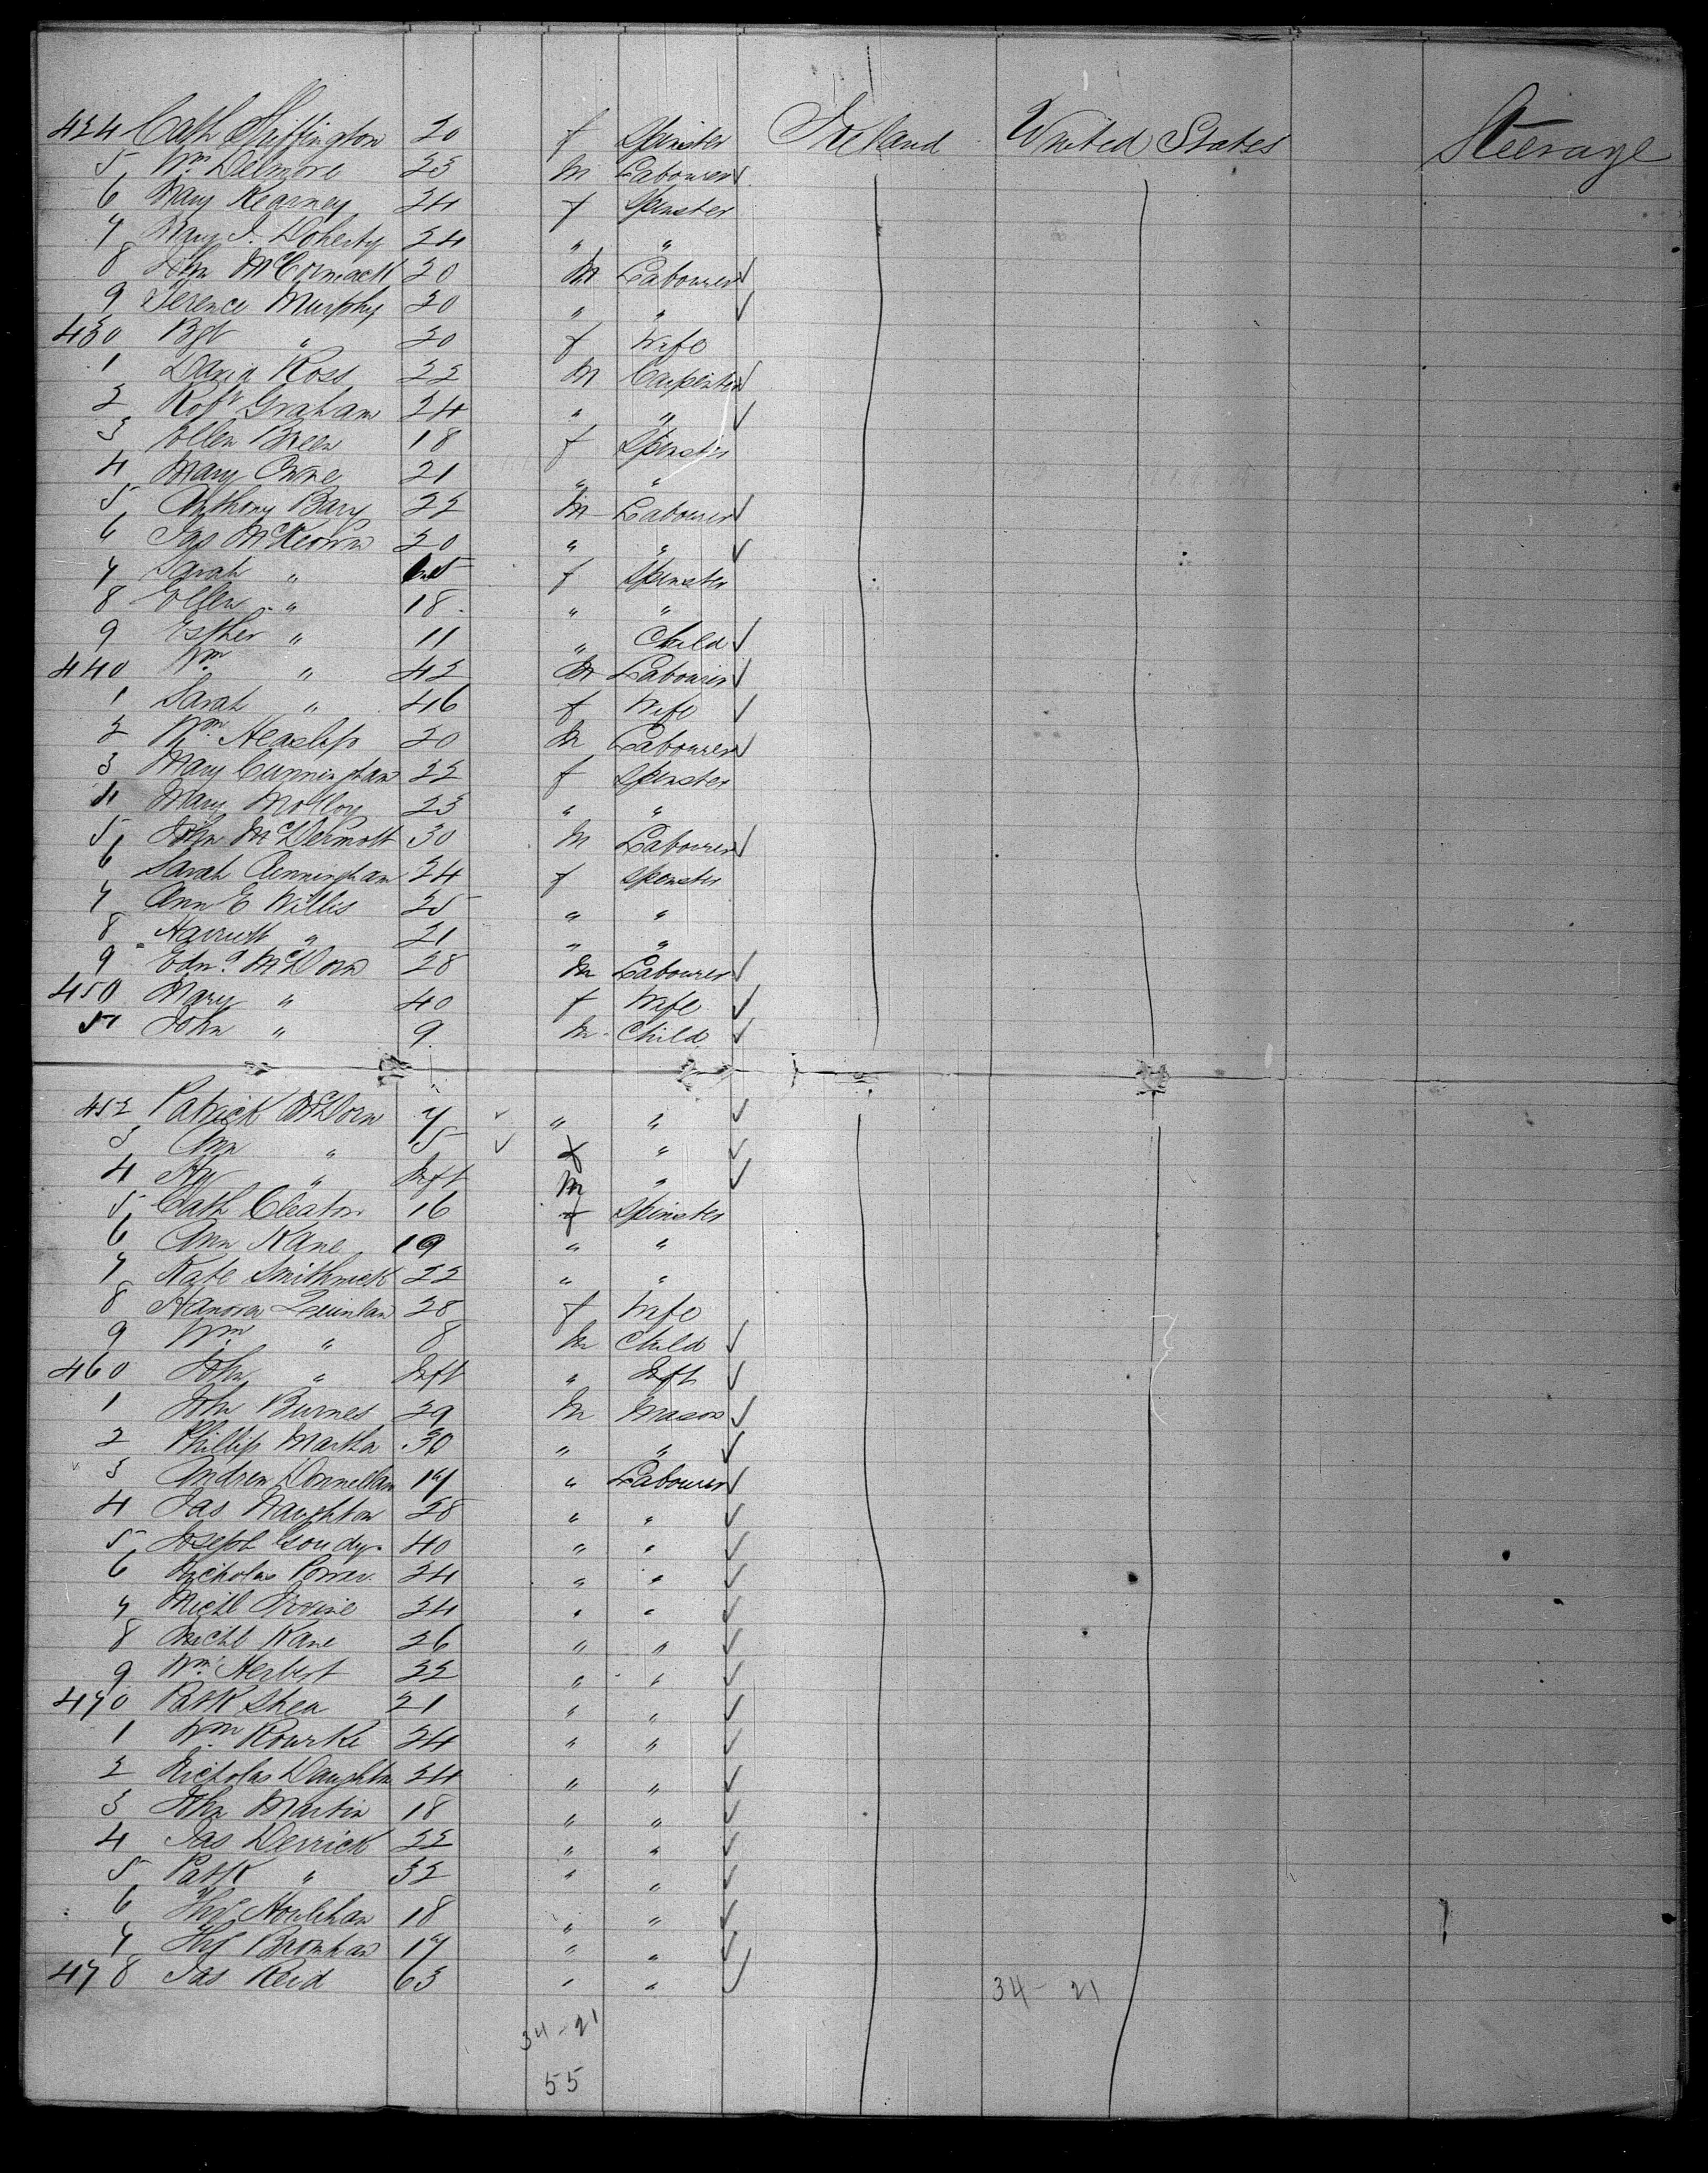 424 Cath Skiffington 20 f Spinster Ireland United States Steerage
5 Wm Delmore 23 M Labourer
6 Mary Kearney 24 f Spinster
7 Mary J. Doherty 24 " "
8 John McCormack 20 M Labourer
9 Terence Murphy 20 " "
430 Bgt " 20 f Wife
1 David Ross 22 M Carpenter
2 Robt Graham 24 " "
3 Ellen Breen 18 f Spinster
4 Mary 21 " "
5 Anthony Bary 22 M Labourer
6 Jas McKeown 20 " "
7 Sarah " f Spinster
8 Ellen " 18 " "
9 Esther " 11 " Child
440 Wm " 42 M Labourer
1 Sarah " 46 f Wife
2 Wm Heaslip 20 M Labourer
3 Mary Cunningham 22 f Spinster
4 Mary Molloy 23 " "
5 John McDermott 30 M Labourer
6 Sarah Cunningham 24 f Spinster
7 Ann E Willis 25 " "
8 Harriett " 21 " "
9 Edmd McDorn 28 M Labourer
450 Mary " 40 f Wife
51 John " 9 M Child
452 Patrick McDorn 7 " "
3 Ann " 5 f "
4 Hy " Inft M "
5 Cath Cleator 16 f Spinster
6 Ann Kane 19 " "
7 Kate Smithwick 22 " "
8 Hanora Quinlan 28 f Wife
9 Wm " 8 M Child
460 John " Inft " Inft
1 John Burnes 29 M Mason
2 Phillip Martha 30 " "
3 Andrew Donnellan 17 " Labourer
4 Jas Naughton 28 " "
5 Joseph Goudy 40 " "
6 Nicholas Power 24 " "
7 Michl 24 " "
8 Michl Kane 26 " "
9 Wm Herbert 22 " "
470 Patk Shea 21 " "
1 Wm Rourke 24 " "
2 Nicholas Daughton 24 " "
3 John Martin 18 " "
4 Jas Derrick 22 " "
5 Patk " 32 " "
6 Ths Houlihan 18 " "
7 Ths 17 " "
478 Jas Reid 63 " "
34 - 21
34 - 21
55